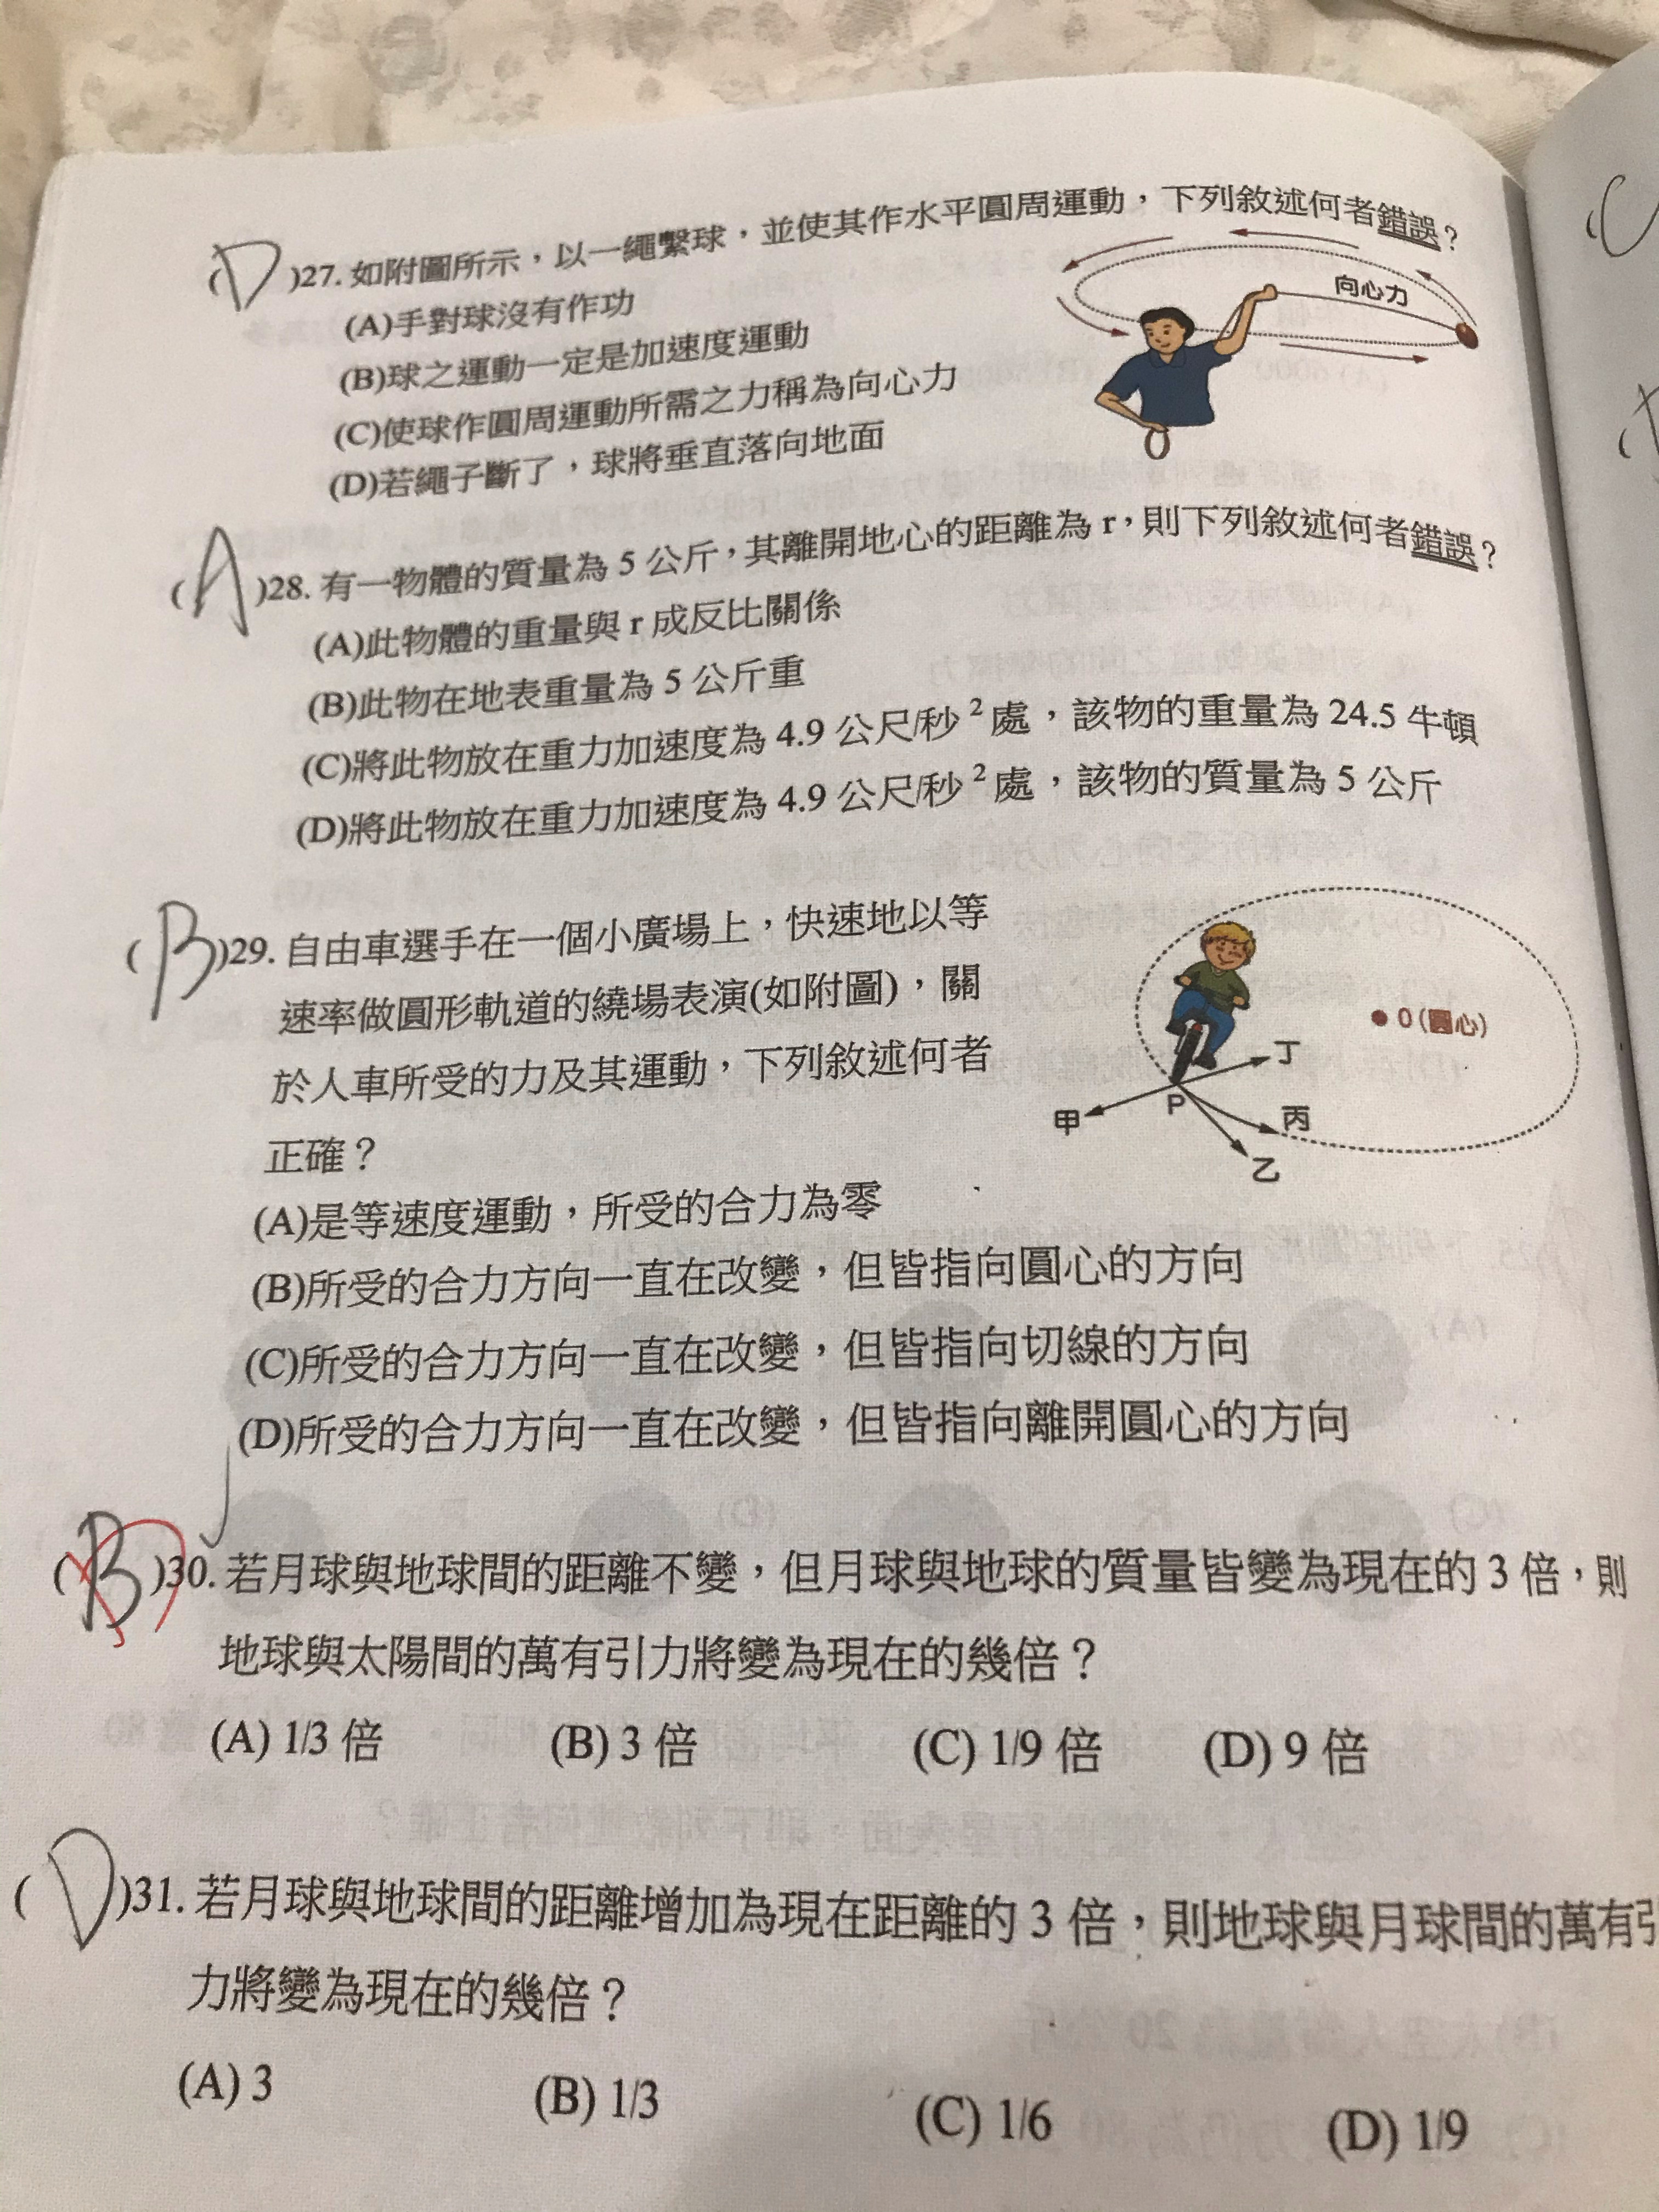 (D)27. 如附圖所示，以一繩繫球，並使其作水平圓周運動，下列敘述何者錯誤？
(A)手對球沒有作功
(B)球之運動一定是加速度運動
(C)使球作圓周運動所需之力稱為向心力
(D)若繩子斷了，球將垂直落向地面
向心力
(A)28. 有一物體的質量為 5 公斤，其離開地心的距離為 r，則下列敘述何者錯誤？
(A)此物體的重量與 r 成反比關係
(B)此物在地表重量為 5 公斤重
(C)將此物放在重力加速度為 4.9 公尺/秒² 處，該物的重量為 24.5 牛頓
(D)將此物放在重力加速度為 4.9 公尺/秒² 處，該物的質量為 5 公斤
(B)29. 自由車選手在一個小廣場上，快速地以等
速率做圓形軌道的繞場表演(如附圖)，關
於人車所受的力及其運動，下列敘述何者
正確？
O(圓心)
丁
甲
P
丙
乙
(A)是等速度運動，所受的合力為零
(B)所受的合力方向一直在改變，但皆指向圓心的方向
(C)所受的合力方向一直在改變，但皆指向切線的方向
(D)所受的合力方向一直在改變，但皆指向離開圓心的方向
(B)30. 若月球與地球間的距離不變，但月球與地球的質量皆變為現在的 3 倍，則
地球與太陽間的萬有引力將變為現在的幾倍？
(A) 1/3 倍 (B) 3 倍 (C) 1/9 倍 (D) 9 倍
(D)31. 若月球與地球間的距離增加為現在距離的 3 倍，則地球與月球間的萬有引
力將變為現在的幾倍？
(A) 3 (B) 1/3 (C) 1/6 (D) 1/9